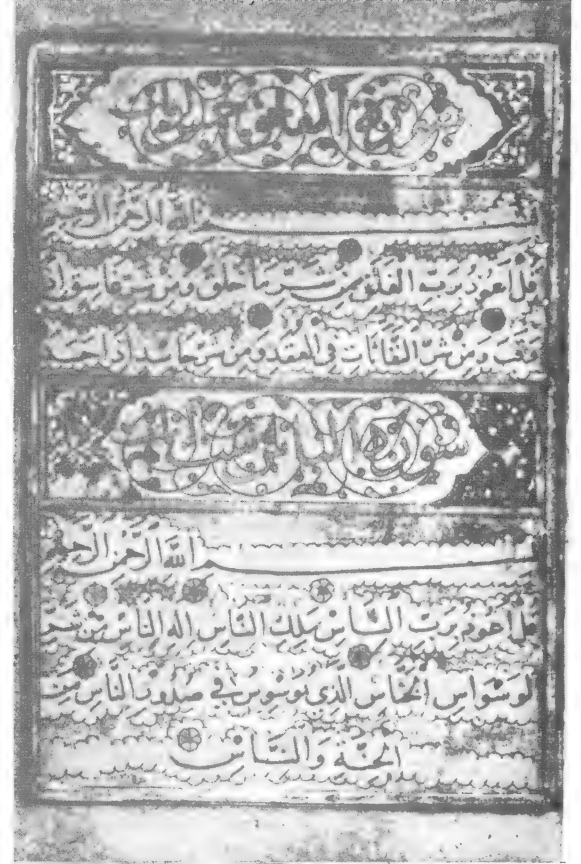 سورة الفلق خمس آيات
بسم الله الرحمن الرحيم
قل اعوذ برب الفلق من شر ما خلق ومن شر غاسق اذا
وقب ومن شر النفاثات في العقد ومن شر حاسد اذا حسد
سورة الناس ست آيات
بسم الله الرحمن الرحيم
قل اعوذ برب الناس ملك الناس اله الناس من شر
الوسواس الخناس الذي يوسوس في صدور الناس من
الجنة والناس